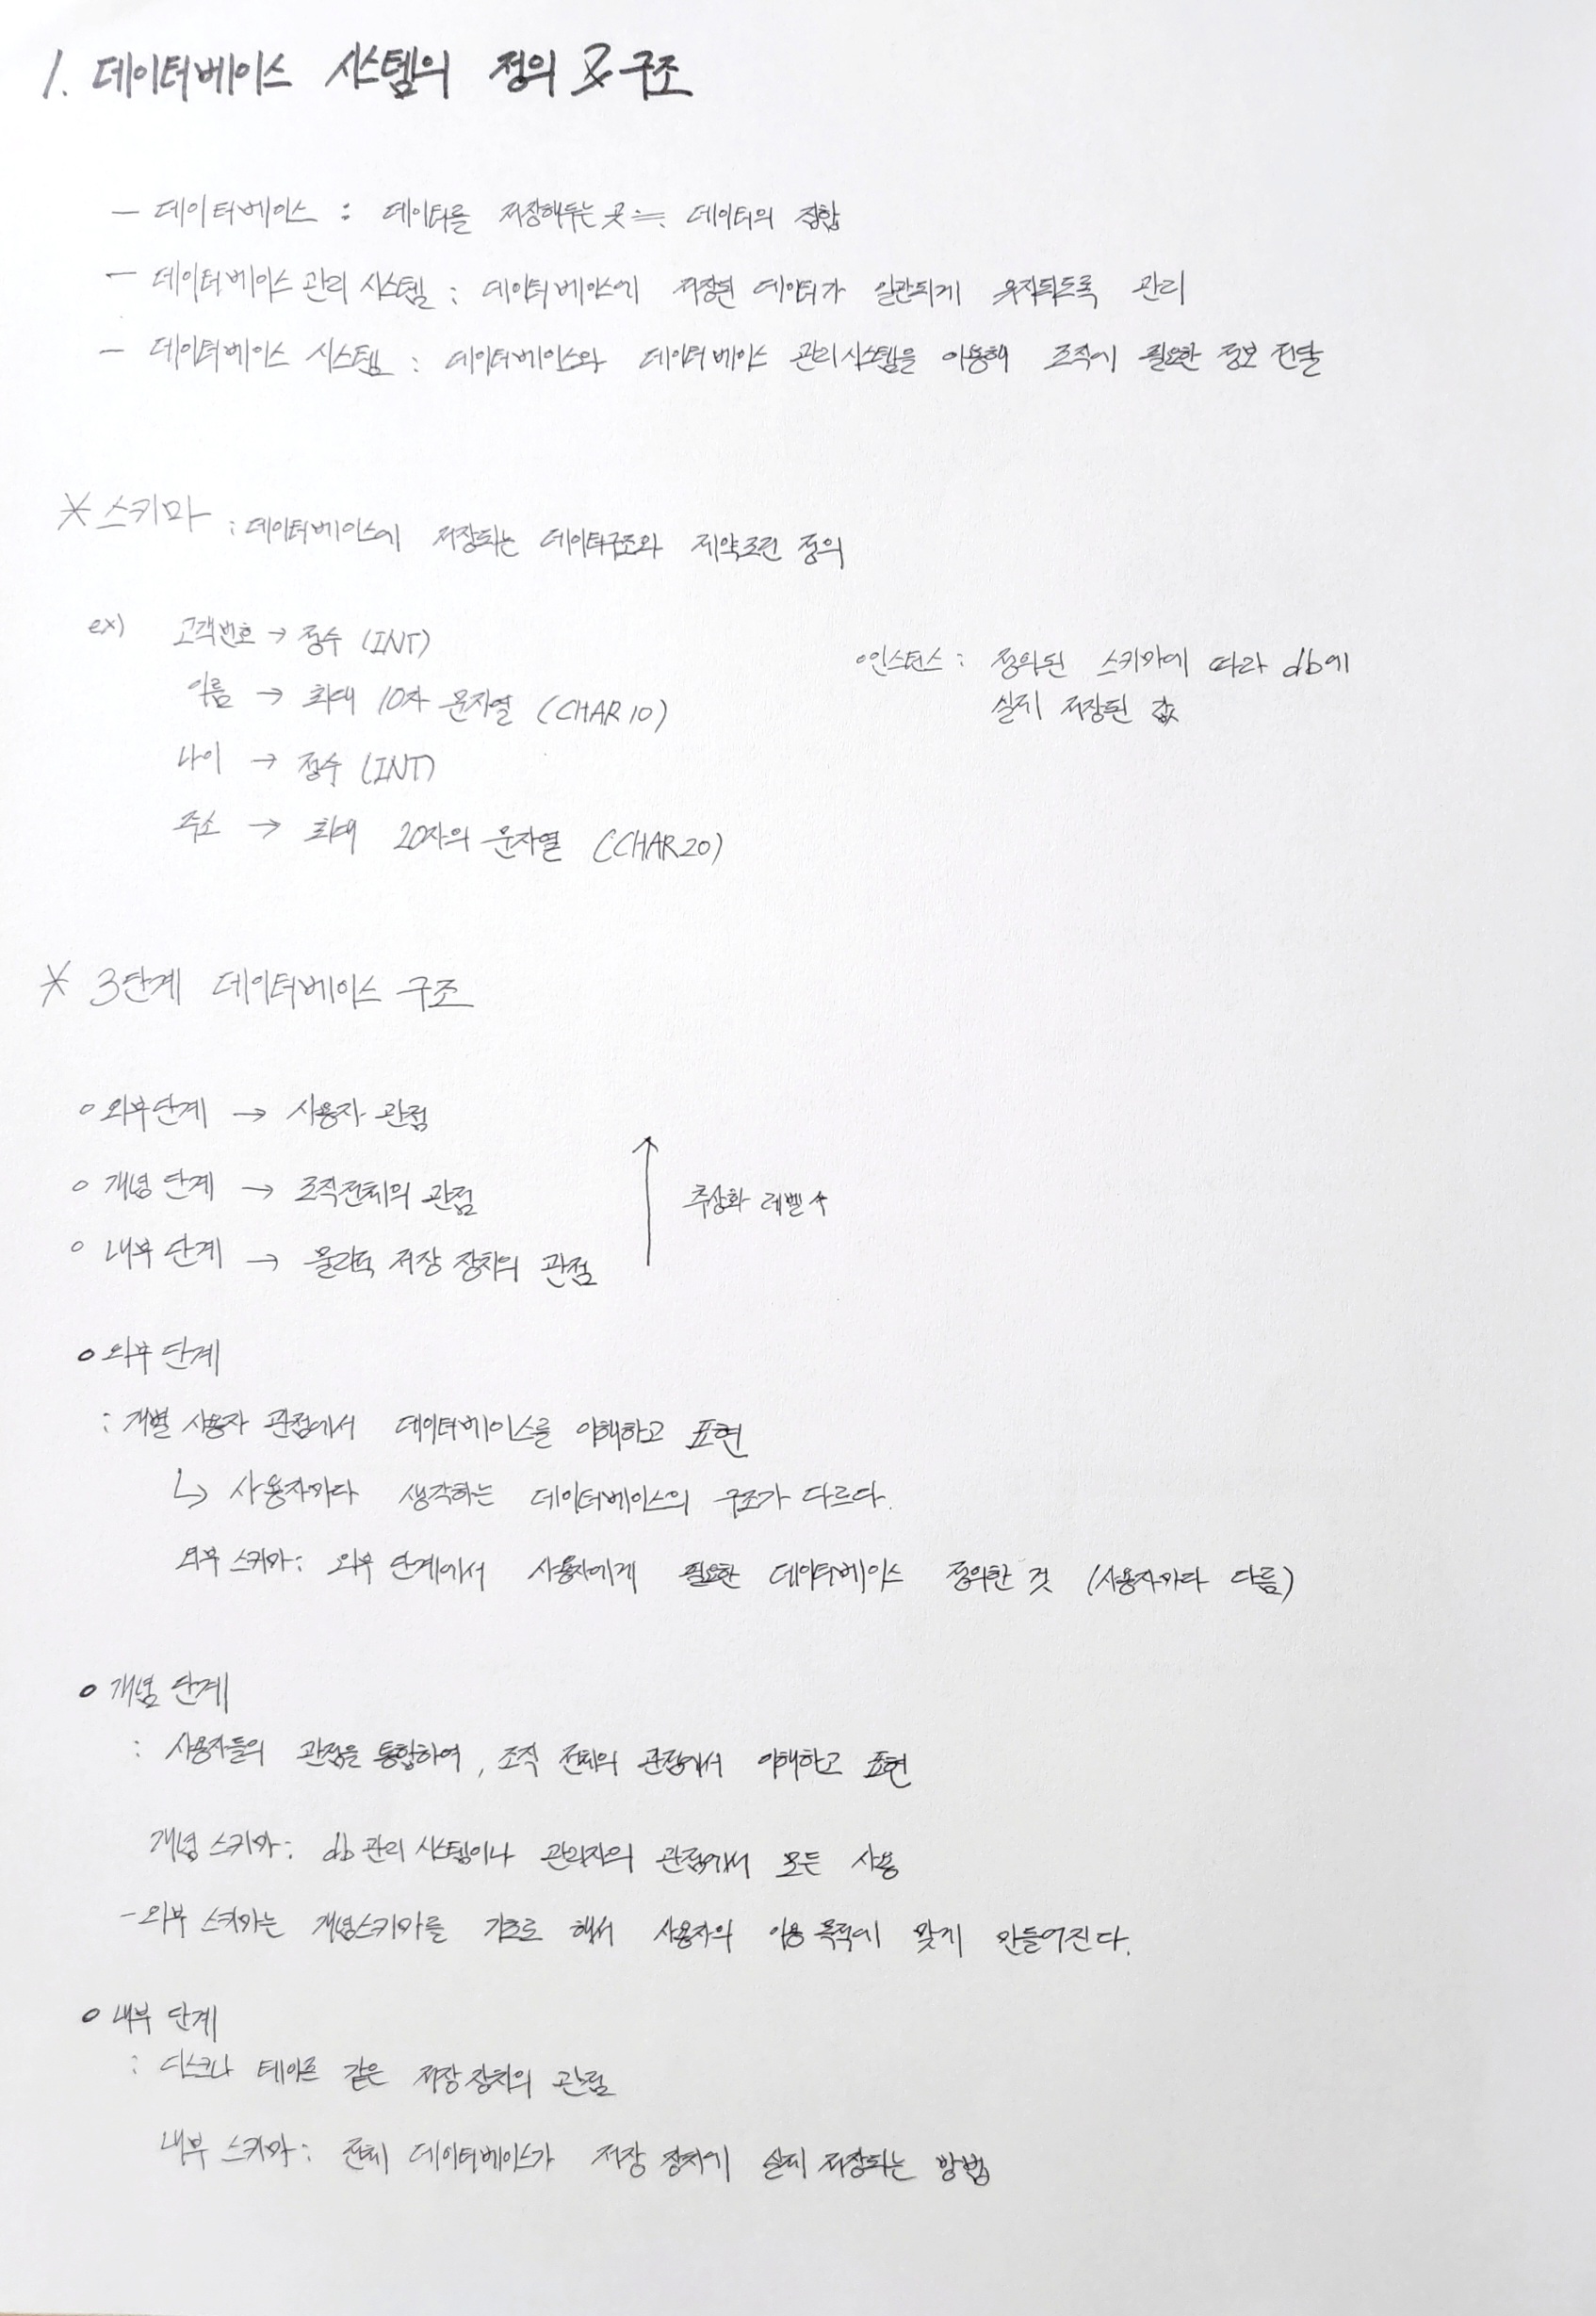 1. 데이터베이스 시스템의 정의 및 구조
- 데이터베이스 : 데이터를 저장해두는 곳 ≒ 데이터의 집합
- 데이터베이스 관리 시스템 : 데이터베이스에 저장된 데이터가 일관되게 유지되도록 관리
- 데이터베이스 시스템 : 데이터베이스와 데이터베이스 관리시스템을 이용해 조직에 필요한 정보 전달
* 스키마 : 데이터베이스에 저장되는 데이터구조와 제약조건 정의
ex) 고객번호 → 정수 (INT)
이름 → 최대 10자 문자열 (CHAR 10)
나이 → 정수 (INT)
주소 → 최대 20자의 문자열 (CHAR 20)
◦인스턴스 : 정의된 스키마에 따라 db에
실제 저장된 값
* 3단계 데이터베이스 구조
◦ 외부단계 → 사용자 관점
◦ 개념 단계 → 조직전체의 관점
◦ 내부 단계 → 물리적 저장 장치의 관점
↑ 추상화 레벨 ↑
◦ 외부 단계
: 개별 사용자 관점에서 데이터베이스를 이해하고 표현
↳ 사용자마다 생각하는 데이터베이스의 구조가 다르다.
외부 스키마 : 외부 단계에서 사용자에게 필요한 데이터베이스 정의한 것 (사용자마다 다름)
◦ 개념 단계
: 사용자들의 관점을 통합하여, 조직 전체의 관점에서 이해하고 표현
개념 스키마 : db 관리 시스템이나 관리자의 관점에서 모든 사용
- 외부 스키마는 개념스키마를 기초로 해서 사용자의 이용 목적에 맞게 만들어진다.
◦ 내부 단계
: 디스크나 테이프 같은 저장 장치의 관점
내부 스키마 : 전체 데이터베이스가 저장 장치에 실제 저장되는 방법